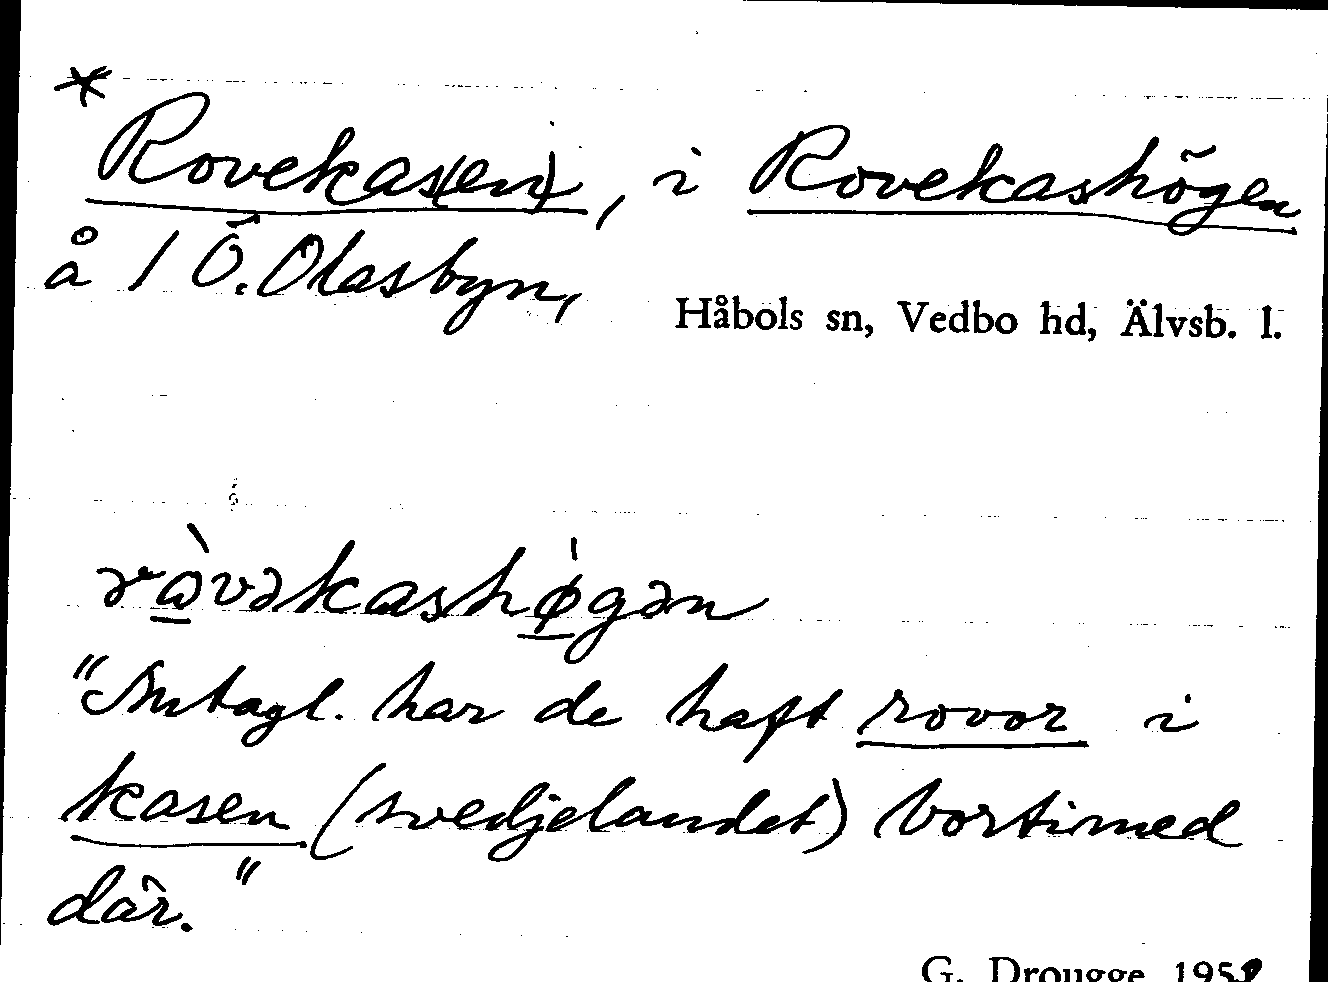 * Rovekas(en), i Rovekashögen
å 1 Ö. Olasbyn,
Håbols sn, Vedbo hd, Älvsb. l.
ròvəkashø̀gən
"Antagl. har de haft rovor i
kasen (svedjelandet) bortimed
där."
G. Drougge